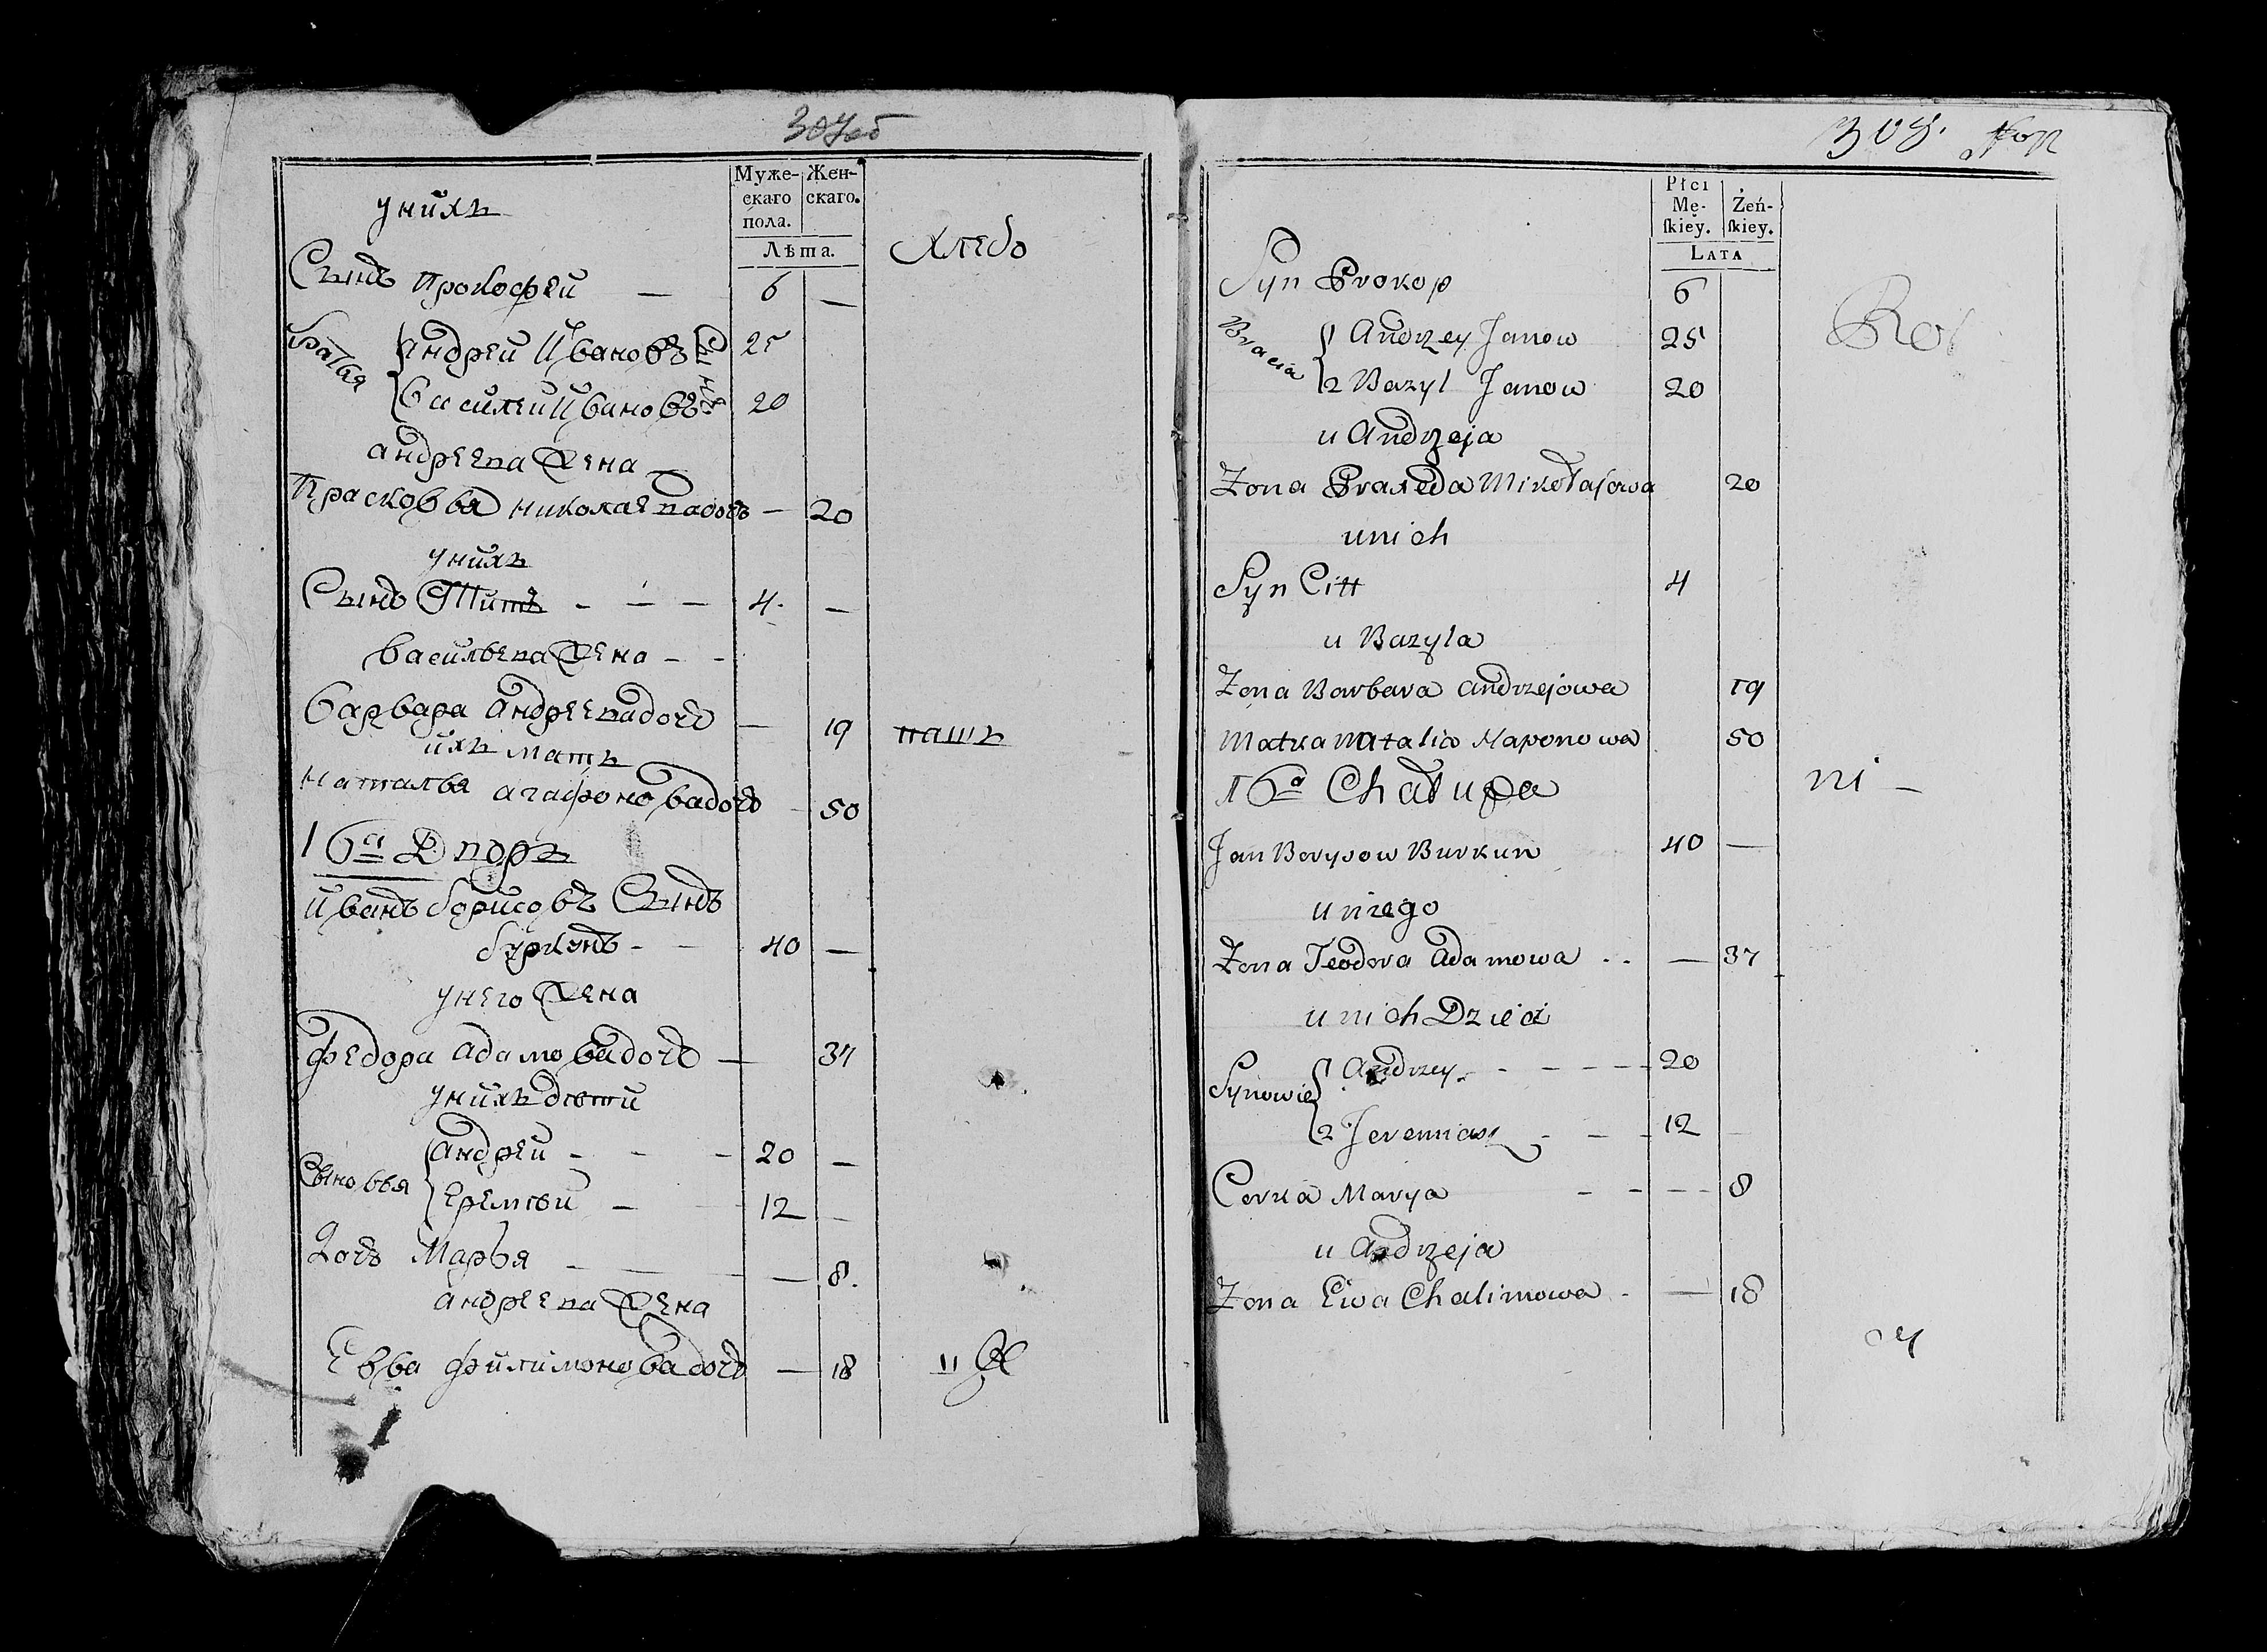 307об
Мужескаго пола.
Женскаго.
Лѣта.
у нихъ
хлебо
Сынъ Прокофей — 6 —
братья
Андрей Ивановъ Сынъ 25
Василей Ивановъ 20
андреева жена
Прасковья николаева дочь — 20
у нихъ
Сынъ Титъ - - - 4. —
васильева жена - -
Варвара андреева дочь — 19
пашъ
ихъ мать
Наталья агафонова дочь - 50
16а Дворъ
Иванъ борисовъ Сынъ
буркунъ - 40 —
у него жена
Федора адамова дочь — 37
у нихъ дѣти
Сыновья
Андрей - - - 20 —
Еремѣй - 12 —
Дочь Марья — — 8.
андреева жена
Евва филимонова дочь — 18
цы
308.
Płci Męſkiey.
Żeńſkiey.
LATA
Syn Prokop 6
Rol
Bracia
1 Andrzey Janow 25
2 Bazyl Janow 20
u Andrzeja
Zona Praxeda Mikołajowa 20
u nich
Syn Citt 4
u Bazyla
Zona Barbara andrzejowa 19
Matka Natalia Haponowa 50
16a Chałupa
ni —
Jan Borysow Burkun 40 —
u niego
Zona Teodora Adamowa .. — 37
u nich Dzieci
Synowie
1 Andrzey - - - - 20
2 Jeremiasz - - - 12
Corka Marya - - - - 8
u Andrzeja
Zona Ewa Chalimowa - — 18
cy